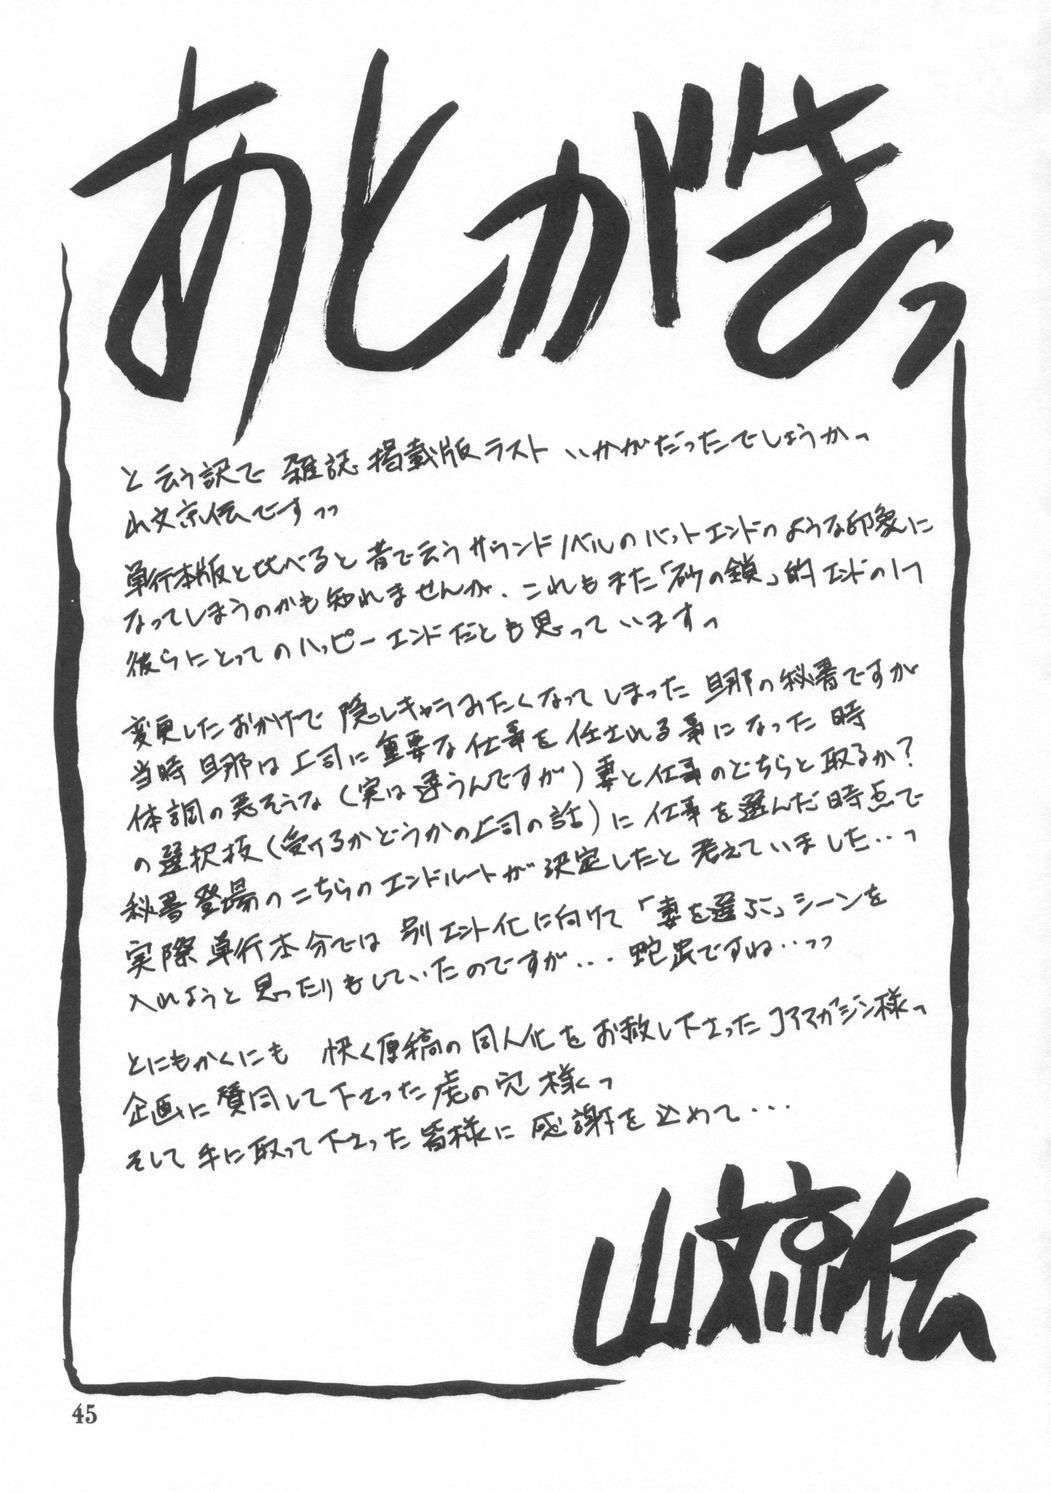 あとがきっ
と云う訳で 雑誌掲載版ラスト いかがだったでしょうかっ
山文京伝ですっっ
単行本版と比べると昔で云うサウンドノベルのバットエンドのような印象に
なってしまうのかも知れませんが、これもまた「砂の鎖」的エンドの1つ
彼らにとってのハッピーエンドだとも思っていますっ
変更したおかげで 隠しキャラみたくなってしまった旦那の秘書ですが
当時旦那は上司に重要な仕事を任される事になった時
体調の悪そうな(実は違うんですが)妻と仕事のどちらと取るか?
の選択枝(受けるかどうかの上司の話)に仕事を選んだ時点で
秘書登場のこちらのエンドルートが決定したと考えていました・・っ
実際単行本分では 別エンド化に向けて「妻を選ぶ」シーンを
入れようと思ったりもしていたのですが・・・ 蛇足ですね・・っっ
とにもかくにも 快く原稿の同人化をお赦し下さったコアマガジン様っ
企画に賛同して下さった虎の穴様っ
そして手に取って下さった皆様に 感謝を込めて・・・
山文京伝
45